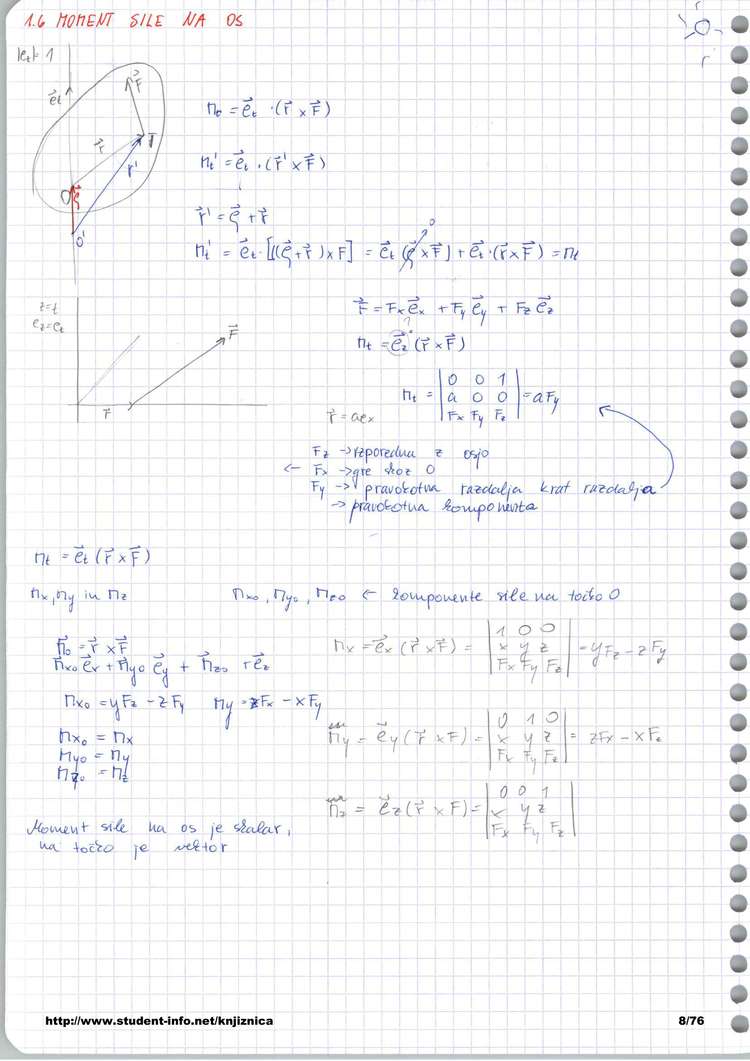 1.6 MOMENT SILE NA OS
|e⃗t| = 1
e⃗t
F⃗
r⃗
T
r⃗'
O
ξ⃗
O'
Mt = e⃗t · (r⃗ × F⃗)
Mt' = e⃗t · (r⃗' × F⃗)
r⃗' = ξ⃗ + r⃗
Mt' = e⃗t · [((ξ⃗ + r⃗) × F] = e⃗t (ξ⃗ × F⃗) + e⃗t · (r⃗ × F⃗) = Mt
0
z = t
ez = et
F⃗
r⃗
F⃗ = Fx e⃗x + Fy e⃗y + Fz e⃗z
Mt = e⃗z (r⃗ × F⃗)
r⃗ = aex
Mt = | 0 0 1 |
| a 0 0 | = aFy
| Fx Fy Fz |
Fz → vzporedna z osjo
← Fx → gre skoz O
Fy → pravokotna razdalja krat razdalja
→ pravokotna komponenta
Mt = e⃗t (r⃗ × F⃗)
Mx, My in Mz
Mxo, Myo, Mzo ← komponente sile na točko O
M⃗o = r⃗ × F⃗
M⃗xo e⃗x + M⃗yo e⃗y + M⃗zo e⃗z
Mxo = yFz − zFy My = zFx − xFy
Mxo = Mx
Myo = My
Mzo = Mz
Mx = e⃗x (r⃗ × F⃗) = | 1 0 0 |
| x y z | = yFz − zFy
| Fx Fy Fz |
My = e⃗y (r⃗ × F) = | 0 1 0 |
| x y z | = zFx − xFz
| Fx Fy Fz |
Mz = e⃗z (r⃗ × F) = | 0 0 1 |
| x y z |
| Fx Fy Fz |
Moment sile na os je skalar,
na točko je vektor
http://www.student-info.net/knjiznica
8/76